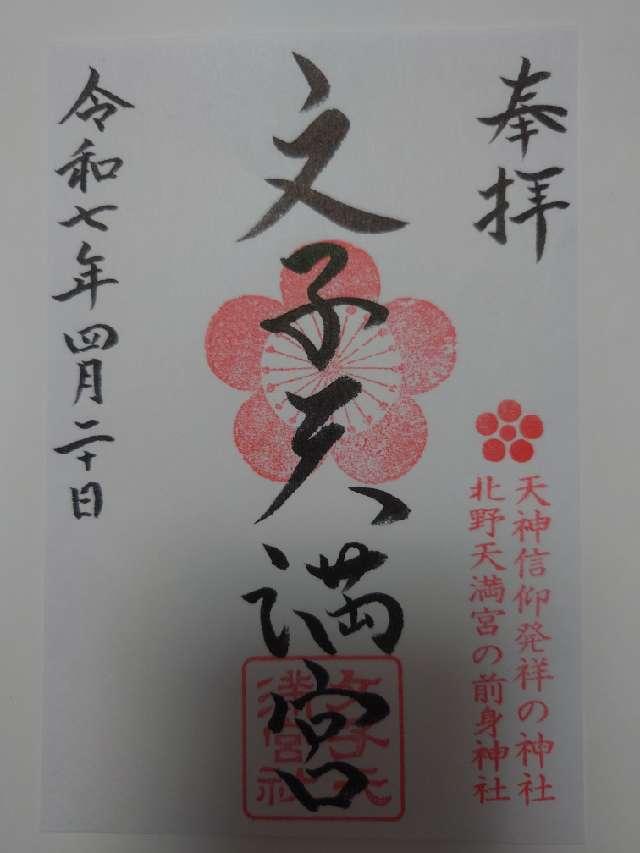 奉拝
天神信仰発祥の神社
北野天満宮の前身神社
文子天満宮
文子天
満宮社
令和七年四月二十日